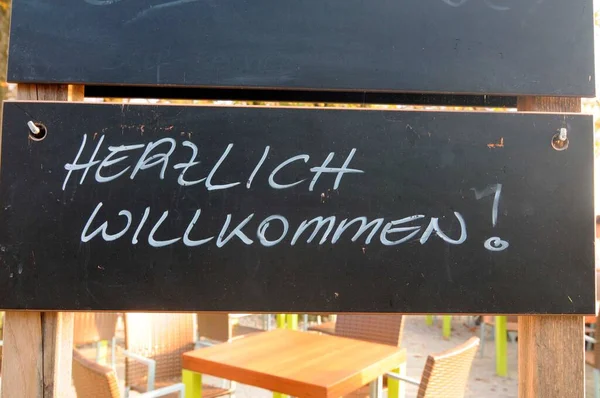 HERZLICH
WILLKOMMEN!